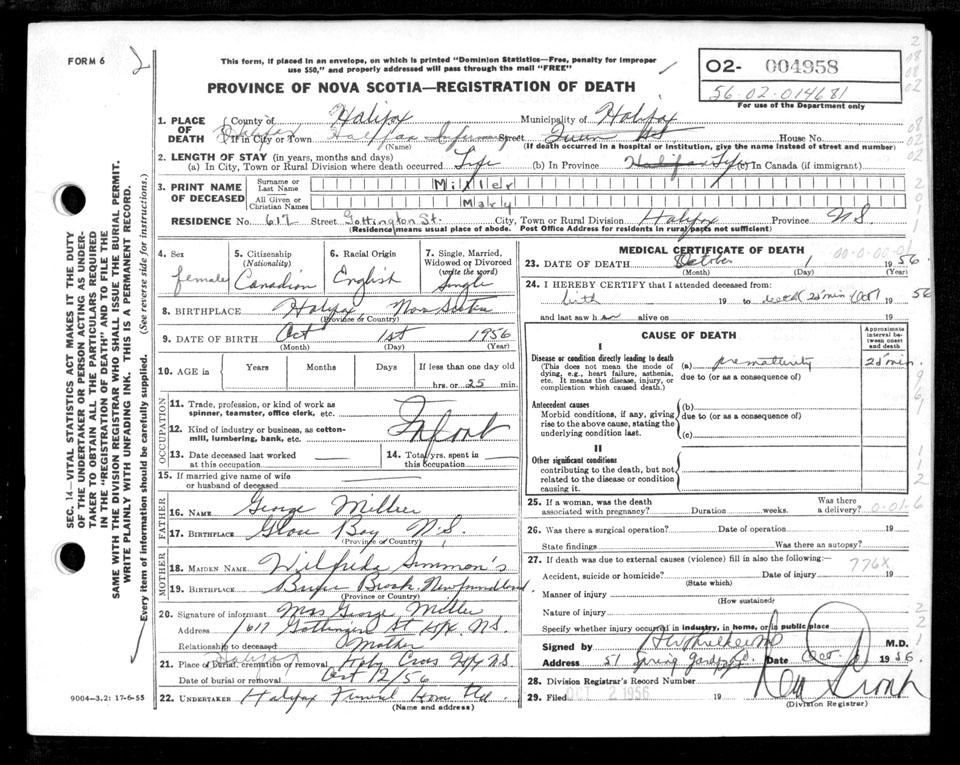 FORM 6
2
This form, if placed in an envelope, on which is printed "Dominion Statistics—Free, penalty for improper
use $50," and properly addressed will pass through the mail "FREE"
PROVINCE OF NOVA SCOTIA—REGISTRATION OF DEATH
02- 004958
56-02-014681
For use of the Department only
1. PLACE OF DEATH
County of Halifax Municipality of Halifax
If in City or Town Halifax Infirmary Street Queen St House No.
(Name) (If death occurred in a hospital or institution, give the name instead of street and number)
2. LENGTH OF STAY (in years, months and days)
(a) In City, Town or Rural Division where death occurred Life (b) In Province Halifax Life (c) In Canada (if immigrant)
3. PRINT NAME OF DECEASED
Surname or Last Name Miller
All Given or Christian Names Mary
RESIDENCE No. 617 Street Gottingen St. City, Town or Rural Division Halifax Province N.S.
(Residence means usual place of abode. Post Office Address for residents in rural parts not sufficient)
4. Sex
female
5. Citizenship
(Nationality)
Canadian
6. Racial Origin
English
7. Single, Married,
Widowed or Divorced
(write the word)
Single
8. BIRTHPLACE Halifax Nova Scotia
(Province or Country)
9. DATE OF BIRTH Oct 1st 1956
(Month) (Day) (Year)
10. AGE in
Years Months Days If less than one day old
hrs. or 25 min.
OCCUPATION
11. Trade, profession, or kind of work as
spinner, teamster, office clerk, etc.
12. Kind of industry or business, as cotton-
mill, lumbering, bank, etc.
Infant
13. Date deceased last worked
at this occupation
14. Total yrs. spent in
this occupation
15. If married give name of wife
or husband of deceased
FATHER
16. NAME George Miller
17. BIRTHPLACE Glace Bay N.S.
(Province or Country)
MOTHER
18. MAIDEN NAME Wilfreda Simmon's
19. BIRTHPLACE Brook Newfoundland
(Province or Country)
20. Signature of informant Mrs George Miller
Address 617 Gottingen St Hfx N.S.
Relationship to deceased Mother
21. Place of burial, cremation or removal Halifax Holy Cross Hfx N.S.
Date of burial or removal Oct 12/56
22. UNDERTAKER Halifax Funeral Home Ltd.
(Name and address)
MEDICAL CERTIFICATE OF DEATH
23. DATE OF DEATH October 1 1956
(Month) (Day) (Year)
24. I HEREBY CERTIFY that I attended deceased from:
birth 19 to death 25 min 19 56
and last saw h alive on 19
CAUSE OF DEATH
Approximate
interval between onset
and death
I
Disease or condition directly leading to death
(This does not mean the mode of
dying, e.g., heart failure, asthenia,
etc. It means the disease, injury, or
complication which caused death.)
(a) prematurity 25 min.
due to (or as a consequence of)
Antecedent causes
Morbid conditions, if any, giving
rise to the above cause, stating the
underlying condition last.
(b)
due to (or as a consequence of)
(c)
II
Other significant conditions
contributing to the death, but not
related to the disease or condition
causing it.
25. If a woman, was the death
associated with pregnancy? Duration weeks. Was there
a delivery?
26. Was there a surgical operation? Date of operation 19
State findings Was there an autopsy?
27. If death was due to external causes (violence) fill in also the following:
776X
Accident, suicide or homicide? Date of injury 19
(State which)
Manner of injury
(How sustained)
Nature of injury
Specify whether injury occurred in industry, in home, or in public place
Signed by M.D.
Address 51 Spring Garden Rd Date Oct 1956.
28. Division Registrar's Record Number
29. Filed OCT 2 1956 19
(Division Registrar)
SEC. 14—VITAL STATISTICS ACT MAKES IT THE DUTY
OF THE UNDERTAKER OR PERSON ACTING AS UNDER-
TAKER TO OBTAIN ALL THE PARTICULARS REQUIRED
IN THE "REGISTRATION OF DEATH" AND TO FILE THE
SAME WITH THE DIVISION REGISTRAR WHO SHALL ISSUE THE BURIAL PERMIT.
WRITE PLAINLY WITH UNFADING INK. THIS IS A PERMANENT RECORD.
Every item of information should be carefully supplied. (See reverse side for instructions.)
9004-3.2: 17-6-55